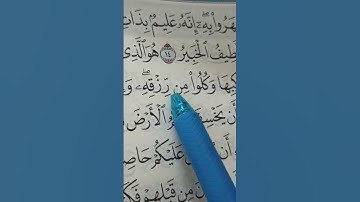 هَرُوا۟ بِهِۦٓ ۖ إِنَّهُۥ عَلِيمٌۢ بِذَاتِ
طِيفُ ٱلْخَبِيرُ ١٤ هُوَ ٱلَّذِى
كِبِهَا وَكُلُوا۟ مِن رِّزْقِهِۦ ۖ وَ
أَن يَخْسِفَ ٱلْأَرْضَ
أَن عَلَيْكُمْ حَاصِ
مِن قَبْلِهِمْ فَكَ